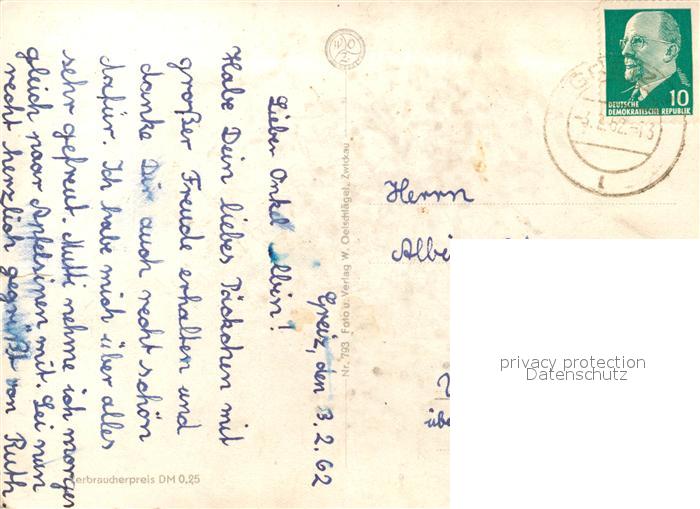 Greiz, den 3.2.62
Lieber Onkel Albin!
Habe Dein liebes Päckchen mit
großer Freude erhalten und
danke Dir auch recht schön
dafür. Ich habe mich über alles
sehr gefreut. Mutti nehme ich morgen
gleich paar Apfelsinen mit. Sei nun
recht herzlich gegrüßt von Ruth.
Verbraucherpreis DM 0,25
Nr. 793 Foto u. Verlag W. Oelschlägel, Zwickau
DEUTSCHE
DEMOKRATISCHE REPUBLIK
10
Herrn
privacy protection
Datenschutz